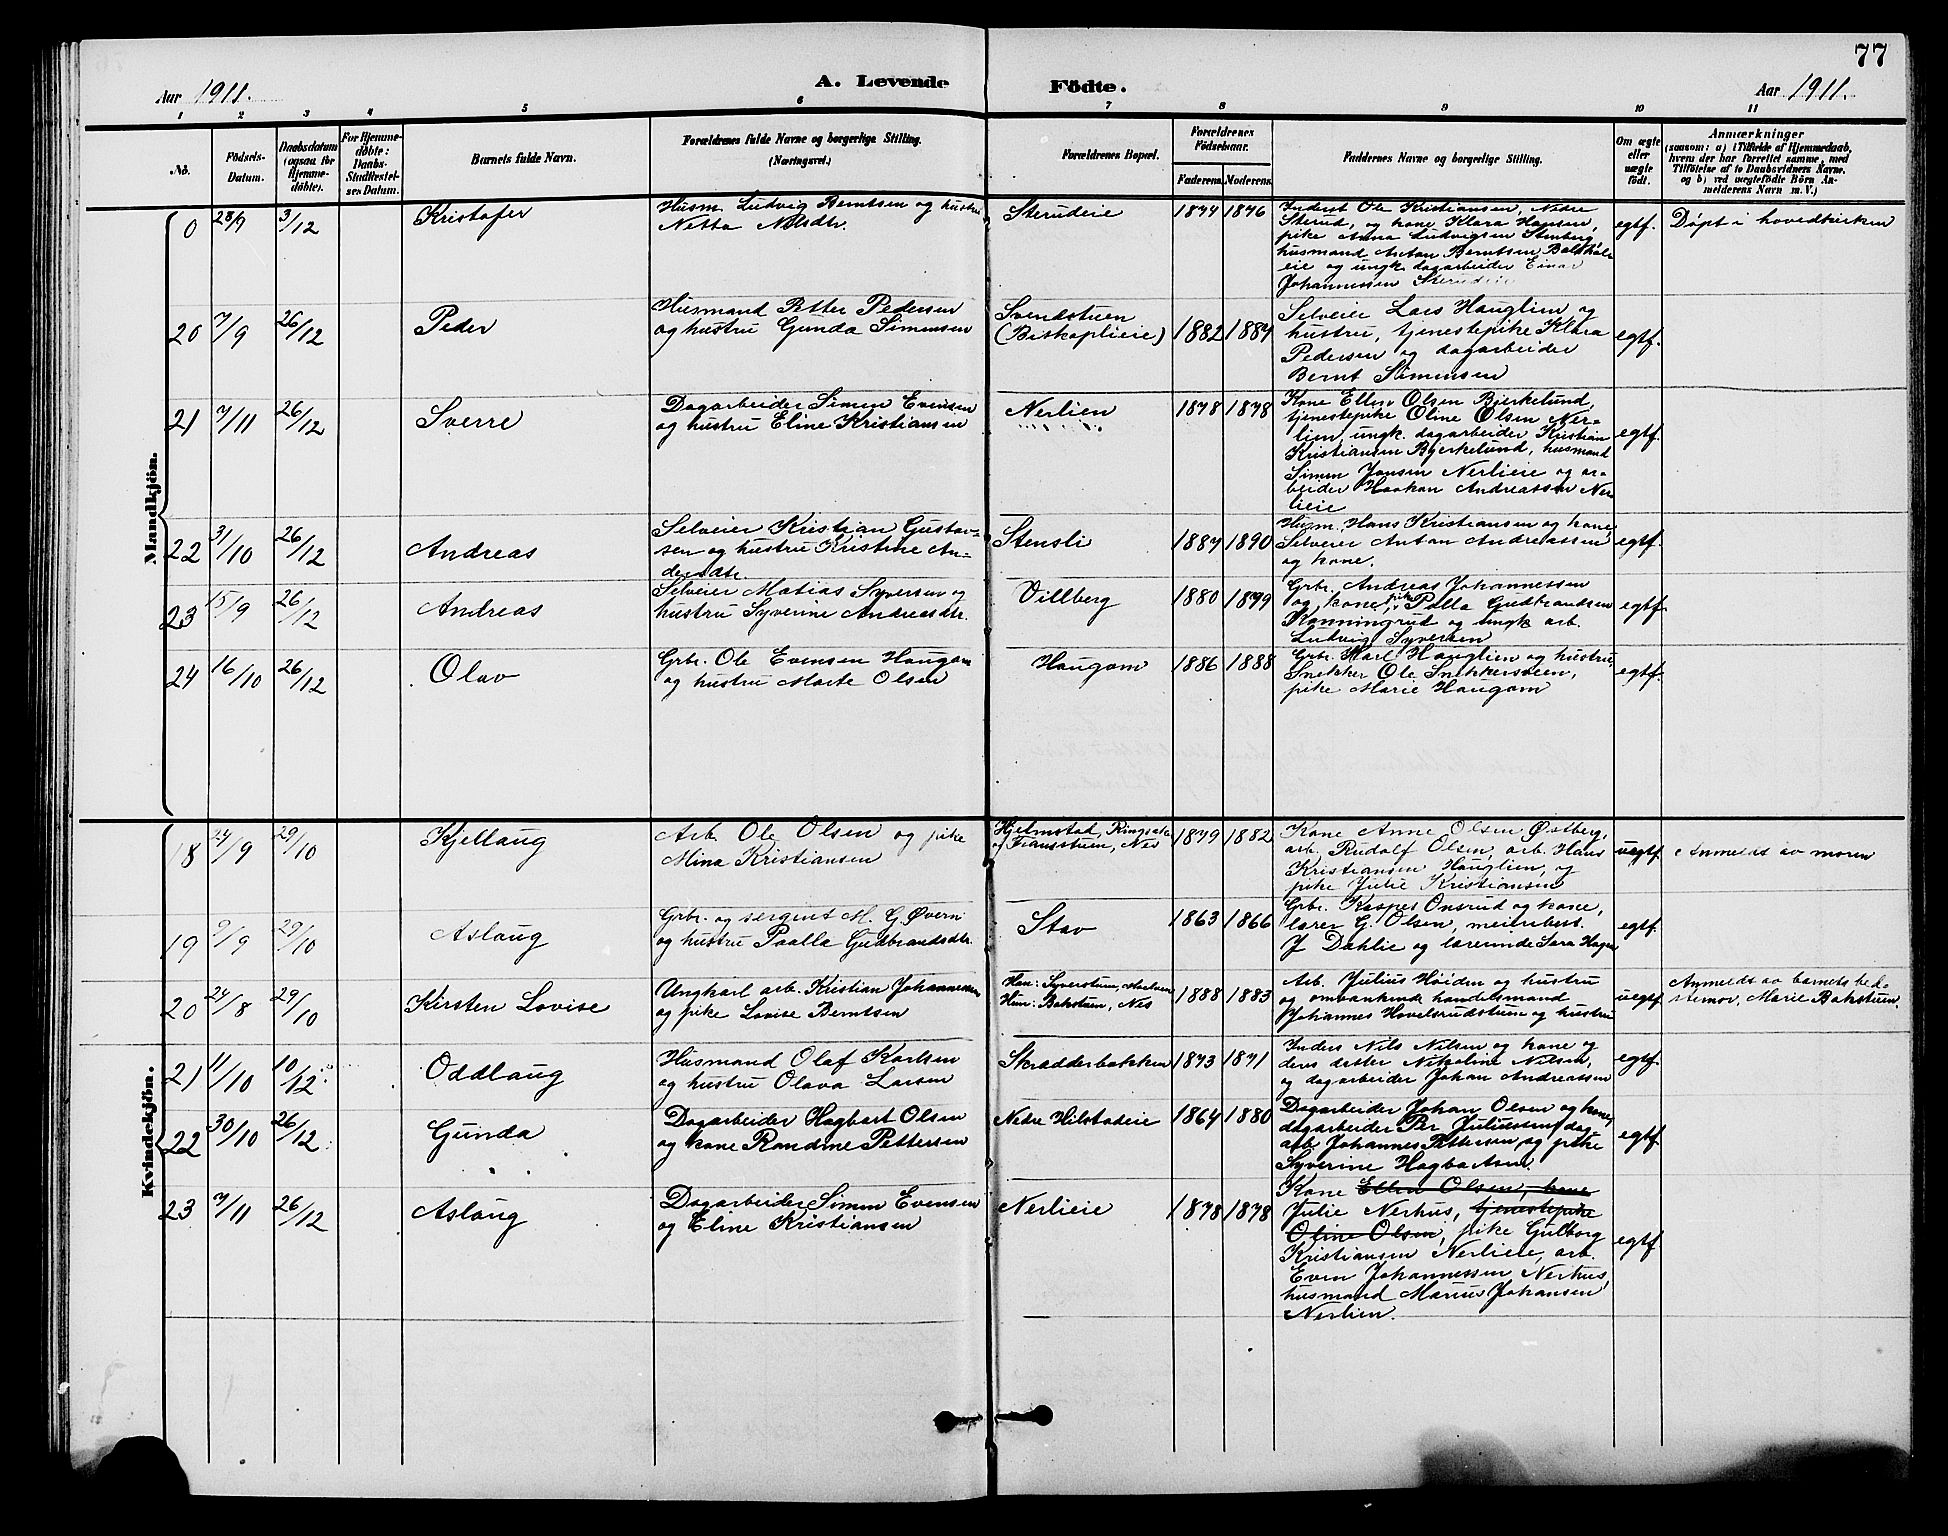 77
Aar 1911.
A. Levende
Födte.
Aar 1911.
1 2 3 4 5 6 7 8 9 10 11
No.
Födsels-
Datum.
Daabsdatum
(ogsaa for
Hjemme-
døbte).
For Hjemme-
døbte:
Daabs-
Stadfæstel-
ses Datum.
Barnets fulde Navn.
Forældrenes fulde Navne og borgerlige Stilling.
(Næringsvei.)
Forældrenes Bopæl.
Forældrenes
Födselsaar.
Faderens. Moderens.
Faddernes Navne og borgerlige Stilling.
Om ægte
eller
uægte
født.
Anmærkninger
(saasom: a) i Tilfælde af Hjemmedaab,
hvem der har forrettet samme, med
Tilföielse af to Daabsvidners Navne,
og b) ved uægtefödte Börn An-
melderens Navn m. V.)
Mandkjön.
0 28/9 3/12 Kristofer
Husm. Ludvig Berntsen og hustru
Netta Nilsdtr.
Sterudeie 1874 1876
Inderst Ole Kristiansen, Nedre
Sterud, og kone Klara Hansen,
pike Anna Ludvigsen Stenberg,
husmand Anton Berntsen
eie og ungk. dagarbeider Einar
Johannessen Sterudeie
egtf. Døpt i hovedkirken
20 7/9 26/12 Peder
Husmand Petter Pedersen
og hustru Gunda Simensen
Svendstuen
(Biskoplieie) 1882 1884
Selveier Lars Hauglien og
hustru, tjenestepike Klara
Pedersen og dagarbeider
Bernt Simensen
egtf.
21 7/11 26/12 Sverre
Dagarbeider Simen Evensen
og hustru Eline Kristiansen
Nerlien 1878 1878
Kone Ellen Olsen Bjerkelund,
tjenestepike Oline Olsen Ner-
lien, ungk. dagarbeider Kristian
Kristiansen Bjerkelund, husmand
Simen Jonsen Nerlieie og ar-
beider Haakon Andreassen Ner
lieie
egtf.
22 31/10 26/12 Andreas
Selveier Kristian Gustav-
sen og hustru Kristine An-
dersdtr.
Stensli 1884 1890
Husm. Hans Kristiansen og kone,
Selveier Anton Andreassen
og kone.
egtf.
23 15/9 26/12 Andreas
Selveier Matias Syversen og
hustru Syverine Andreasdtr.
Villberg 1880 1879
Grbr. Andreas Johannessen
og kone, pike Palla Gudbrandsen
Kanningrud og ungk. arb.
Ludvig Syversen
egtf.
24 16/10 26/12 Olav
Grbr. Ole Evensen Haugom
og hustru Marte Olsen
Haugom 1886 1888
Grbr. Karl Hauglien og hustru,
Snekker Ole Snekkersveen,
pike Marie Haugom
egtf.
Kvindekjön.
18 24/9 29/10 Kjellaug
Arb. Ole Olsen og pike
Mina Kristiansen
Hjelmstad, Ringsaker
og Fransstuen, Nes 1879 1882
Kone Anne Olsen Østberg,
arb. Rudolf Olsen, arb. Hans
Kristiansen Hauglien, og
pike Julie Kristiansen
uegtf. Anmeldt av moren
19 9/9 29/10 Aslaug
Grbr. og sergent M. G. Øvern
og hustru Paalla Gudbrandsdtr.
Stav 1863 1866
Grbr. Kasper Onsrud og kone,
lærer G. Olsen, meieribest.
J. Dahlie og lærerinde Sara Hagen
egtf.
20 24/8 29/10 Kirsten Lovise
Ungkarl arb. Kristian Johannessen
og pike Lovise Berntsen
Han: Syverstuen,
Hun: Bakstuen, Nes 1888 1883
Arb. Julius Høiden og hustru
og omvankende handelsmand
Johannes Hovelsrudstuen og hustru
uegtf.
Anmeldt av barnets bed-
stemor, Marie Bakstuen.
21 11/10 10/12 Oddlaug
Husmand Olaf Karlsen
og hustru Olava Larsen
Skrædderbakken 1873 1871
Inders. Nils Nilsen og kone og
deres datter Nikoline Nilsen,
og dagarbeider Johan Andreassen
egtf.
22 30/10 26/12 Gunda
Dagarbeider Hagbart Olsen
og kone Randine Pettersen
Nedre Hilstadeie 1864 1880
Dagarbeider Johan Olsen og kone,
dagarbeider Per Juliussen, dag-
arb. Johannes Pettersen og pike
Syverine Hagbartsen.
egtf.
23 7/11 26/12 Aslaug
Dagarbeider Simen Evensen
og Eline Kristiansen
Nerlieie 1878 1878
Kone Ellen Olsen, kone
Julie Nerhus, tjenestepike
Oline Olsen, pike Gulborg
Kristiansen Nerlieie, arb.
Even Johannessen Nerhus,
husmand Marius Johansen
Nerlien.
egtf.